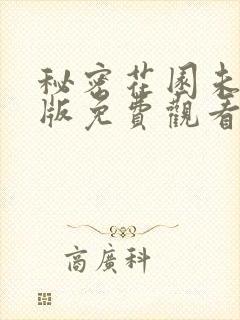 秘密花園未
版免費觀看
高廣科